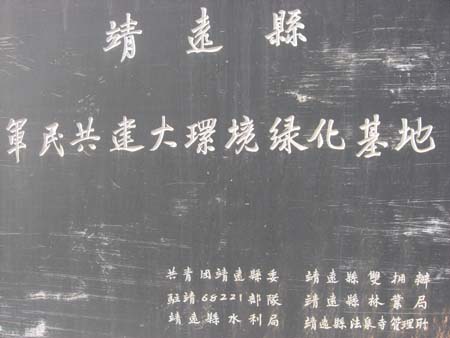 靖遠縣
軍民共建大環境绿化基地
共青团靖遠縣委 靖遠縣雙拥辦
駐靖68221部隊 靖遠縣林業局
靖遠縣水利局 靖遠縣法泉寺管理所